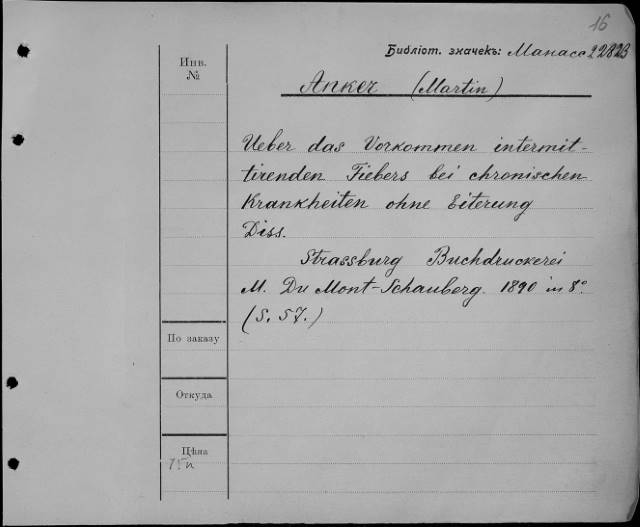 16
Библіот. значекъ: Манасс 22823
Инв.
№
Anker (Martin)
Ueber das Vorkommen intermit-
tirenden Fiebers bei chronischen
Krankheiten ohne Eiterung
Diss.
Strassburg Buchdruckerei
M. Du Mont-Schauberg. 1890 in 8°.
(S. 57.)
По заказу
Откуда
Цѣна